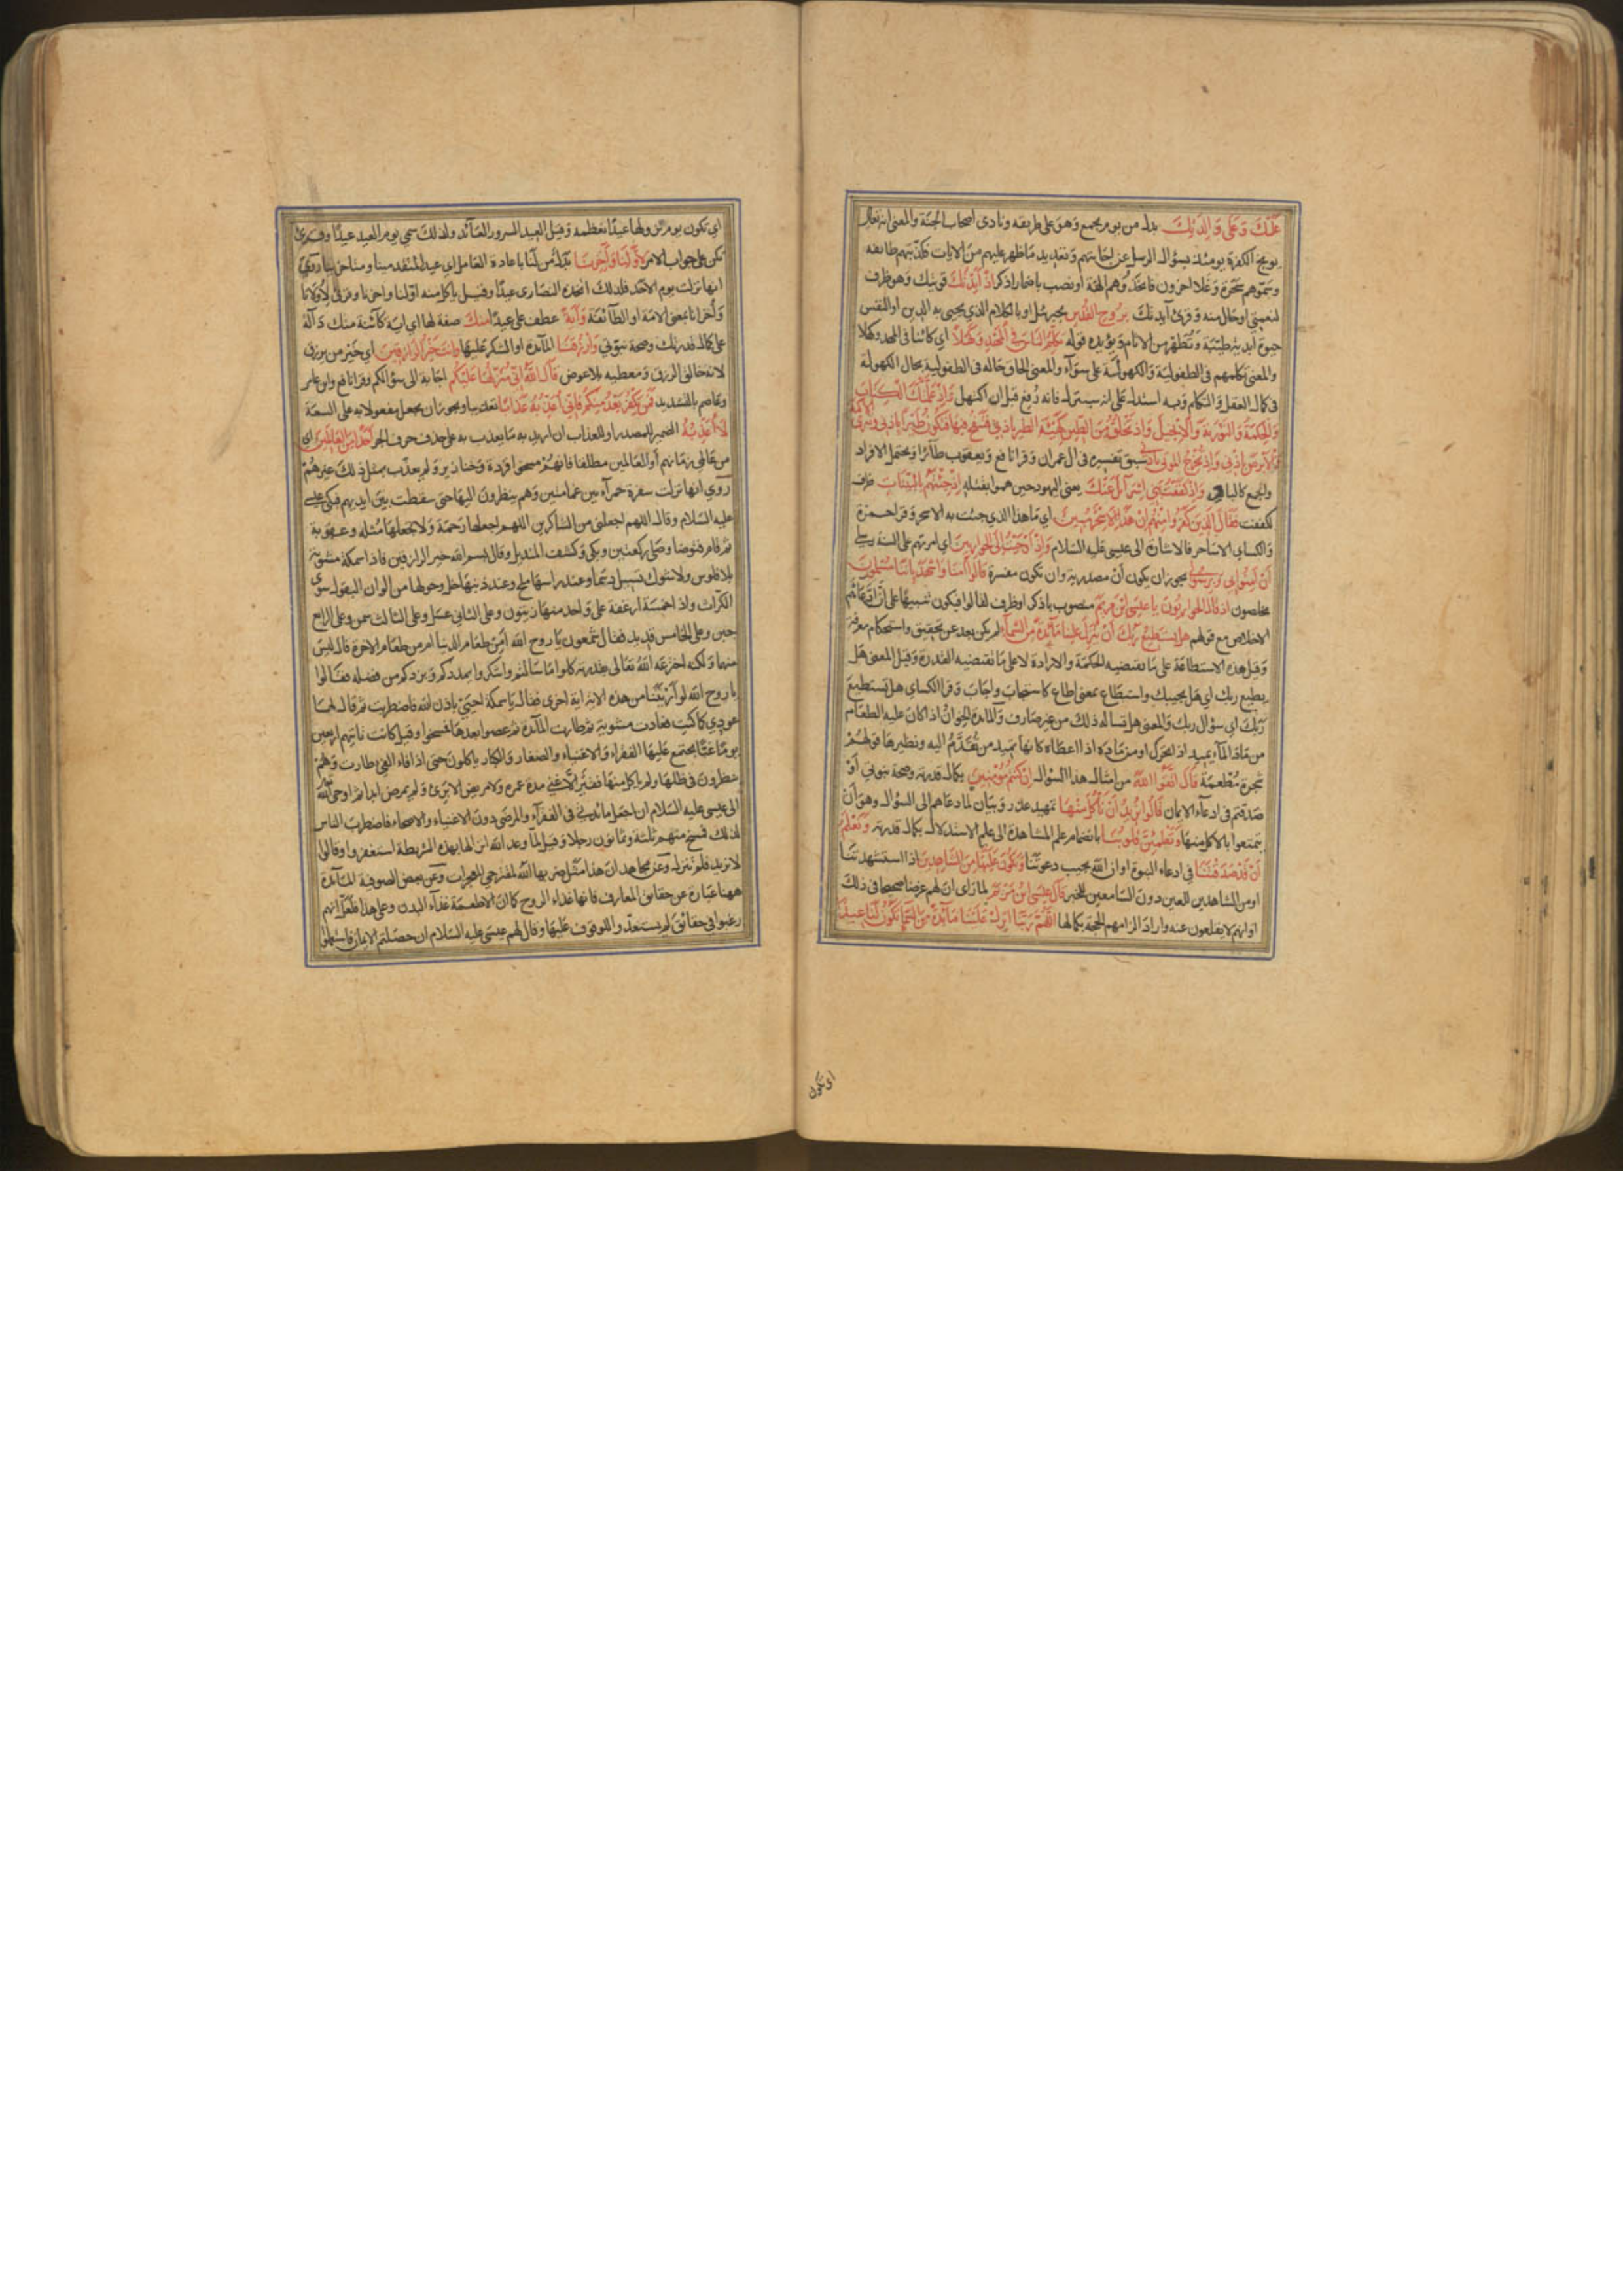 عليك وعلى والدتك بدل من يوم يجمع وهو على طريقه ونادى اصحاب الجنة والمعنى انه تعالى
يوبخ الكفرة يومئذ بسؤال الرسل عن اجابتهم وتعديد ما ظهر عليهم من الايات فكذبتهم طائفة
وسموهم سحرة وغلا اخرون فاتخذوهم الهة او نصب باضمار اذكر اذ ايدتك قويتك وهو ظرف
لنعمتي او حال منه وقرئ آيدتك بروح القدس بجبرئيل او بالكلام الذي يحيى به الدين او النفس
حيوة ابدية وتطهر من الاثام ويؤيده قوله تكلم الناس في المهد وكهلا اي كائنا في المهد وكهلا
والمعنى تكلمهم في الطفولية والكهولة على سوآء والمعنى الحاق حاله في الطفولية بحال الكهولة
في كمال العقل والتكلم وبه استدل على انه سينزل فانه رفع قبل ان اكتهل واذ علمتك الكتاب
والحكمة والتورية والانجيل واذ تخلق من الطين كهيئة الطير باذني فتنفخ فيها فتكون طيرا باذني وتبرئ الاكمه
والابرص باذني واذ تخرج الموتى باذني سبق تفسيره في ال عمران وقرا نافع ويعقوب طآئرا ويحتمل الافراد
والجمع كالباقر واذ كففت بني اسرآئل عنك يعني اليهود حين هموا بقتله اذ جئتهم بالبينات ظرف
لكففت فقال الذين كفروا منهم ان هذا الا سحر مبين اي ما هذا الذي جئت به الا سحر وقرا حمزة
والكساي الا ساحر فالاشارة الى عيسى عليه السلام واذ اوحيت الى الحواريين اي امرتهم على السنة رسلي
أن آمنوا بي وبرسولي يجوز ان يكون أن مصدرية وان تكون مفسرة قالوا آمنا واشهد باننا مسلمون
مخلصون اذ قال الحواريون يا عيسى ابن مريم منصوب باذكر او ظرف لقالوا فيكون تنبيها على ان ادعآئهم
الاخلاص مع قولهم هل يستطيع ربك أن ينزل علينا مآئدة من السمآء لم يكن بعد عن تحقيق واستحكام معرفة
وقيل هذه الاستطاعة على ما تقتضيه الحكمة والارادة لا على ما تقتضيه القدرة وقيل المعنى هل
يطيع ربك اي هل يجيبك واستطاع بمعنى اطاع كاستجاب واجاب وقرا الكساي هل تستطيع
ربك اي سؤال ربك والمعنى هل تساله ذلك من غير صارف والمائدة الخوان اذا كان عليه الطعام
من ماد المآء يميد اذا تحرك او من ماده اذا اعطاه كانها تميد من تقدم اليه ونظيرها قولهم
شجرة مطعمة قال اتقوا الله من امثال هذا السؤال ان كنتم مؤمنين بكمال قدرته وصحة نبوتي أو
صدقتم في ادعآء الايمان قالوا نريد أن ناكل منها تمهيد عذر وبيان لما دعاهم الى السؤال وهو أن
يتمتعوا بالاكل منها وتطمئن قلوبنا بانضمام علم المشاهدة الى علم الاستدلال بكمال قدرته ونعلم
أن قد صدقتنا في ادعاء النبوة او ان الله يجيب دعوتنا ونكون عليها من الشاهدين اذا استشهدتنا
او من الشاهدين للعين دون السامعين للخبر قال عيسى ابن مريم لما راى ان لهم غرضا صحيحا في ذلك
او انهم لا يقلعون عنه واراد الزامهم الحجة بكمالها اللهم ربنا انزل علينا مآئدة من السمآء تكون لنا عيدا
اي تكون
اي تكون يوم نزولها عيدا نعظمه وقيل العيد السرور العآئد ولذلك سمي يوم العيد عيدا وقرئ
تكن على جواب الامر لاولنا وآخرنا بدل من لنا باعادة العامل اي عيدا لمتقدمينا ومتاخرينا روي
انها نزلت يوم الاحد فلذلك اتخذه النصارى عيدا وقيل ياكل منه اولنا واخرنا وقرئ لاولانا
وأخرانا بمعنى الامة او الطآئفة وآية عطف على عيدا منك صفة لها اي اية كآئنة منك دآلة
على كمال قدرتك وصحة نبوتي وارزقنا المآئدة او الشكر عليها وانت خير الرازقين اي خير من يرزق
لانه خالق الرزق ومعطيه بلا عوض قال الله اني منزلها عليكم اجابة الى سؤالكم وقرا نافع وابن عامر
وعاصم بالتشديد فمن يكفر بعد منكم فاني اعذبه عذابا تعذيبا ويجوز ان يجعل مفعولا به على السعة
لا اعذبه الضمير للمصدر او للعذاب ان اريد به ما يعذب به على حذف حرف الجر احدا من العالمين اي
من عالمي زمانهم أو العالمين مطلقا فانهم مسخوا قردة وخنازير ولم يعذب بمثل ذلك غيرهم
روي انها نزلت سفرة حمرآء بين غمامتين وهم ينظرون اليها حتى سقطت بين ايديهم فبكى عيسى
عليه السلام وقال اللهم اجعلني من الشاكرين اللهم اجعلها رحمة ولا تجعلها مثلة وعقوبة
ثم قام فتوضا وصلى ركعتين وبكى وكشف المنديل وقال بسم الله خير الرازقين فاذا سمكة مشوية
بلا فلوس ولا شوك تسيل دسما وعند راسها ملح وعند ذنبها خل وحولها من الوان البقول سوى
الكراث واذا خمسة ارغفة على واحد منها زيتون وعلى الثاني عسل وعلى الثالث سمن وعلى الرابع
جبن وعلى الخامس قديد فقال شمعون يا روح الله أمن طعام الدنيا ام من طعام الاخرة قال ليس
منهما ولكنه اخترعه الله تعالى بقدرته كلوا ما سالتم واشكروا يمددكم ويزدكم من فضله فقالوا
يا روح الله لو أريتنا من هذه الاية اية اخرى فقال يا سمكة احيي باذن الله فاضطربت ثم قال لها
عودي كما كنت فعادت مشوية ثم طارت المآئدة ثم عصوا بعدها فمسخوا وقيل كانت تاتيهم اربعين
يوما غبا يجتمع عليها الفقراء والاغنياء والصغار والكبار ياكلون حتى اذا فاء الفيء طارت وهم
ينظرون في ظلها ولم ياكل منها فقير الا غني مدة عمره ولا مريض الا برئ ولم يمرض ابدا ثم اوحى الله
الى عيسى عليه السلام ان اجعل مائدتي في الفقرآء والمرضى دون الاغنياء والاصحاء فاضطرب الناس
لذلك فمسخ منهم ثلثة وثمانون رجلا وقيل لما وعد الله انزالها بهذه الشريطة استغفروا وقالوا
لا نريد فلم تنزل وعن مجاهد ان هذا مثل ضربه الله لمقترحي المعجزات وعن بعض الصوفية المآئدة
ههنا عبارة عن حقائق المعارف فانها غذاء الروح كما ان الاطعمة غذآء البدن وعلى هذا فلعل انهم
رغبوا في حقائق لم يستعدوا للوقوف عليها وقال لهم عيسى عليه السلام ان حصلتم الايمان فاستعملوا